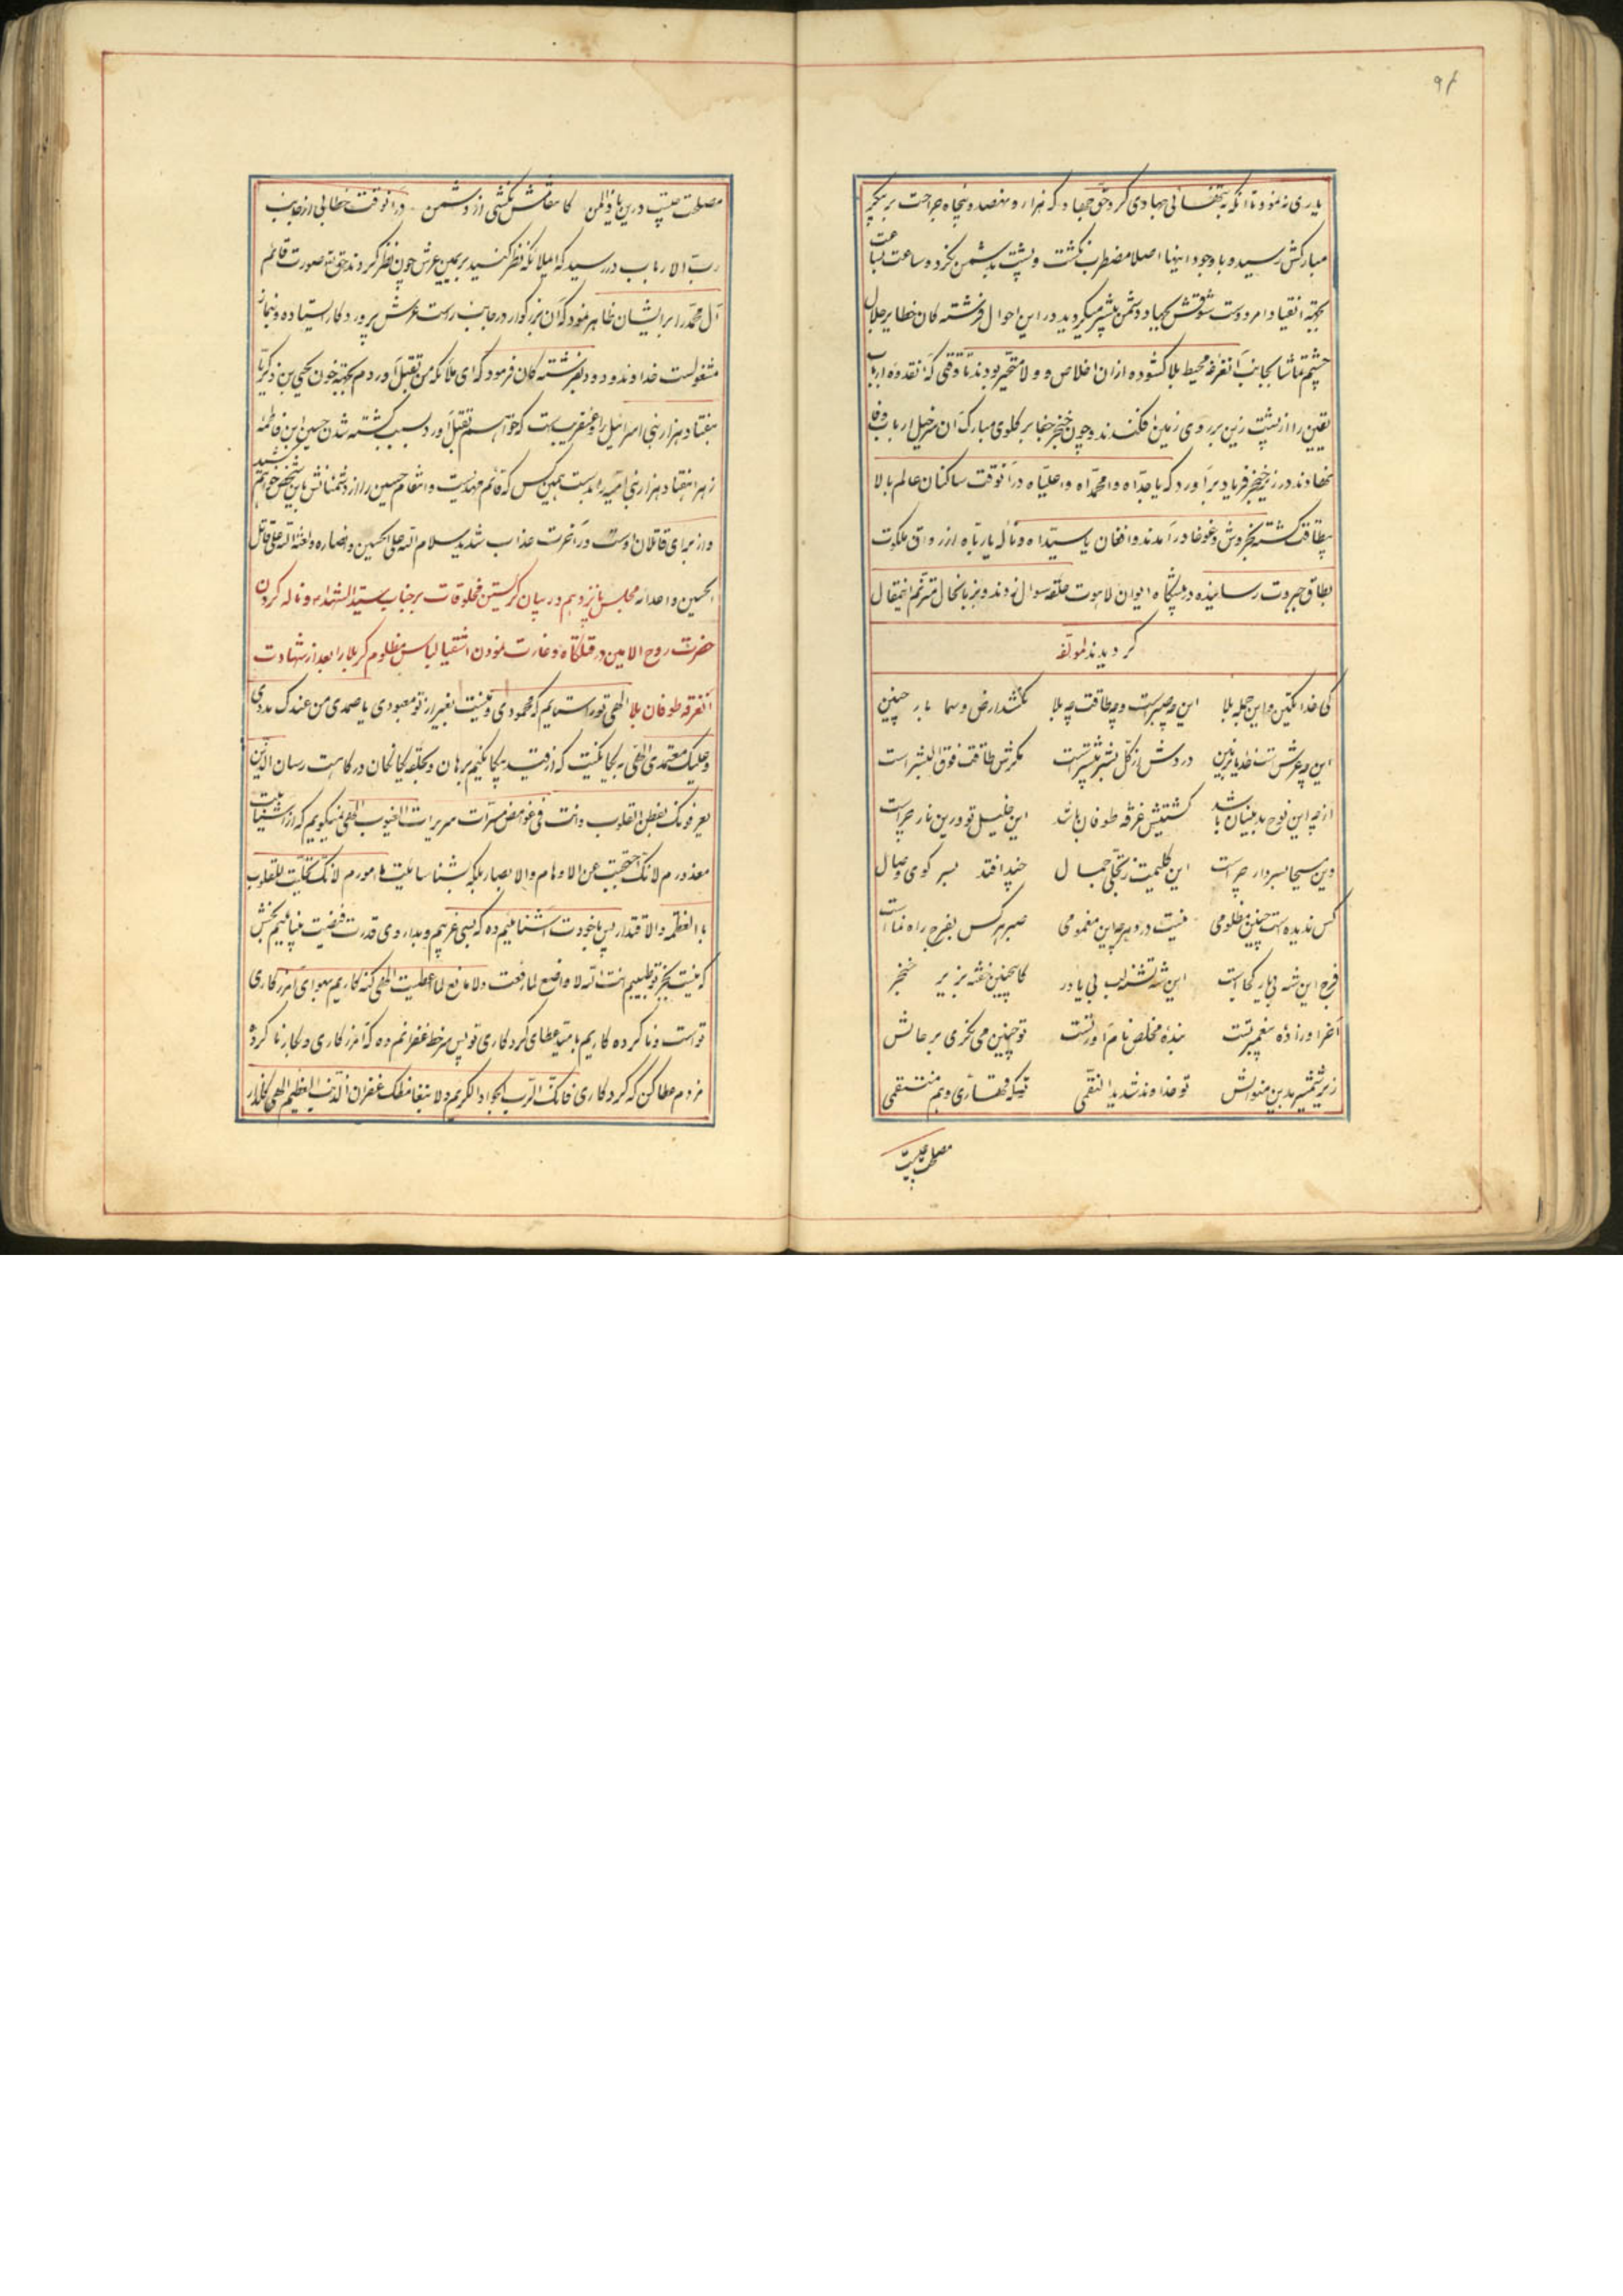 ۹۶
یاری نه نمود تا آنکه به تنهائی جهادی کرد حق جهاد که هزار و نهصد و پنجاه جراحت بر پیکر
مبارکش رسید و با وجود اینها اصلا مضطرب نگشت و پشت به دشمن نکرد و ساعت بساعت
بجهة انقیاد امر دوست شوقش بجهاد دشمن بیشتر میگردید در این احوال فرشته کان حظایر جلال
چشم تماشا بجانب آنغرقهٔ محیط بلا کشوده از ان اخلاص و ولا متحیر بودند تا وقتی که آنقدوهٔ ارباب
یقین را از پشت زین بر روی زمین افکندند و چون خنجر جفا بر گلوی مبارک آن سرخیل ارباب وفا
نهادند در زیر خنجر فریاد برآورد که یا جداه وا محمداه وا علیاه در آنوقت ساکنان عالم بالا
بیطاقت گشته بخروش و غوغا در آمدند و افغان یا سیداه و نالهٔ یا رباه از رواق ملکوت
بطاق جبروت رسانیده در پیشگاه ایوان لاهوت حلقه سوال زدند و بزبانحال مترنم اینمقال
گردیدند لمولفه
کی خدا یکتن و این جمله بلا این چه صبر است و چه طاقت چه بلا نکشد ارض و سما بار چنین
این چه عرش است خدایا بزمین دردش از کل بشر بیشتر است مگرش طاقت فوق البشر است
از چه این نوح بدینسان باشد کشتیش غرقه طوفان باشد این خلیل تو درین نار چراست
وین مسیحا بسر دار چراست این کلیمت ز تجلی جمال چند افتد بسر کوی وصال
کس ندیده است چنین مظلومی نیست در دهر چو این مغمومی صبر هر کس بفرج راه نما است
فرج این شه بی یار کجا است این شه تشنه لب بی یاور کاینچنین خفته بزیر خنجر
آخر او زادهٔ پیغمبر تست بندهٔ مخلص نام آور تست تو چنین می نگری بر حالش
زیر شمشیر بدین منوالش تو خداوند شدید النقمی تو که قهاری و هم منتقمی
مصلحت چیست
مصلحت چیست درین یا ذوالمن کانتقامش نکشی از دشمن در آنوقت خطابی از جانب
رب الارباب در رسید که ای ملائکه نظر کنید بر یمین عرش چون نظر کردند حق تع صورت قائم
آل محمد را بر ایشان ظاهر نمود که آن بزرگوار در جانب راست عرش پروردکار ایستاده و بنماز
مشغولست خداوند ودود بفرشته کان فرمود که ای ملائکه من تقبل آوردم بجهة خون یحیی بن زکریا
هفتاد هزار بنی اسرائیل را و عنقریبست که خواهم بقتل آورد بسبب کشته شدن حسین ابن فاطمه
زهرا هفتاد هزار بنی امیه را بدست همین کس که قائم مهدیست و انتقام حسین را از دشمنانش باین شخص خواهم کشید
و از برای قاتلان اوست در آخرت عذاب شدید سلام الله علی الحسین و انصاره و لعنة الله علی قاتل
الحسین و اعدائه مجلس پانزدهم در بیان گریستن مخلوقات بر جناب سید الشهداء و ناله کردن
حضرت روح الامین در قتلگاه و غارت نمودن اشقیا لباس مظلوم کربلا را بعد از شهادت
آنغرقه طوفان بلا الهی تو را ستایم که محمودی و نیست بغیر از تو معبودی یا صمدی من عندک مددی
و علیک معتمدی الهی به یکتائیت که از قید یکتائیم برهان و بحلقه یکتائیان درگاهت رسان الذین
یعرفونک بفطن القلوب وانت فی غوامض مسرات سریرات الغیوب الهی نمیگویم که از شناسائیت
معذورم لانک احتجبت عن الاوهام والابصار بلکه بشناسائیت مامورم لانک تجلیت للقلوب
بالعظمه والاقتدار پس با خودت آشنائیم ده که بسی غریبم و بداروی قدرت فیضیت بینائیم بخش
که نیست بجز تو طبیبم انت الله لا واضع لما رفعت ولا مانع لما اعطیت الهی گنه کاریم بهوای آمرزکاری
تو است و ناکرده کاریم بامید عطای کردکاری تو پس سر خط غفرانم ده که آمرزکاری و بکار ناکرده
مزدم عطا کن که کردکاری فانک الرب الجواد الکریم ولا یتعاظمک غفران الذنب العظیم الهی